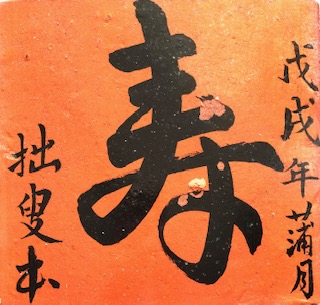 戊戌年蒲月
寿
拙叟本